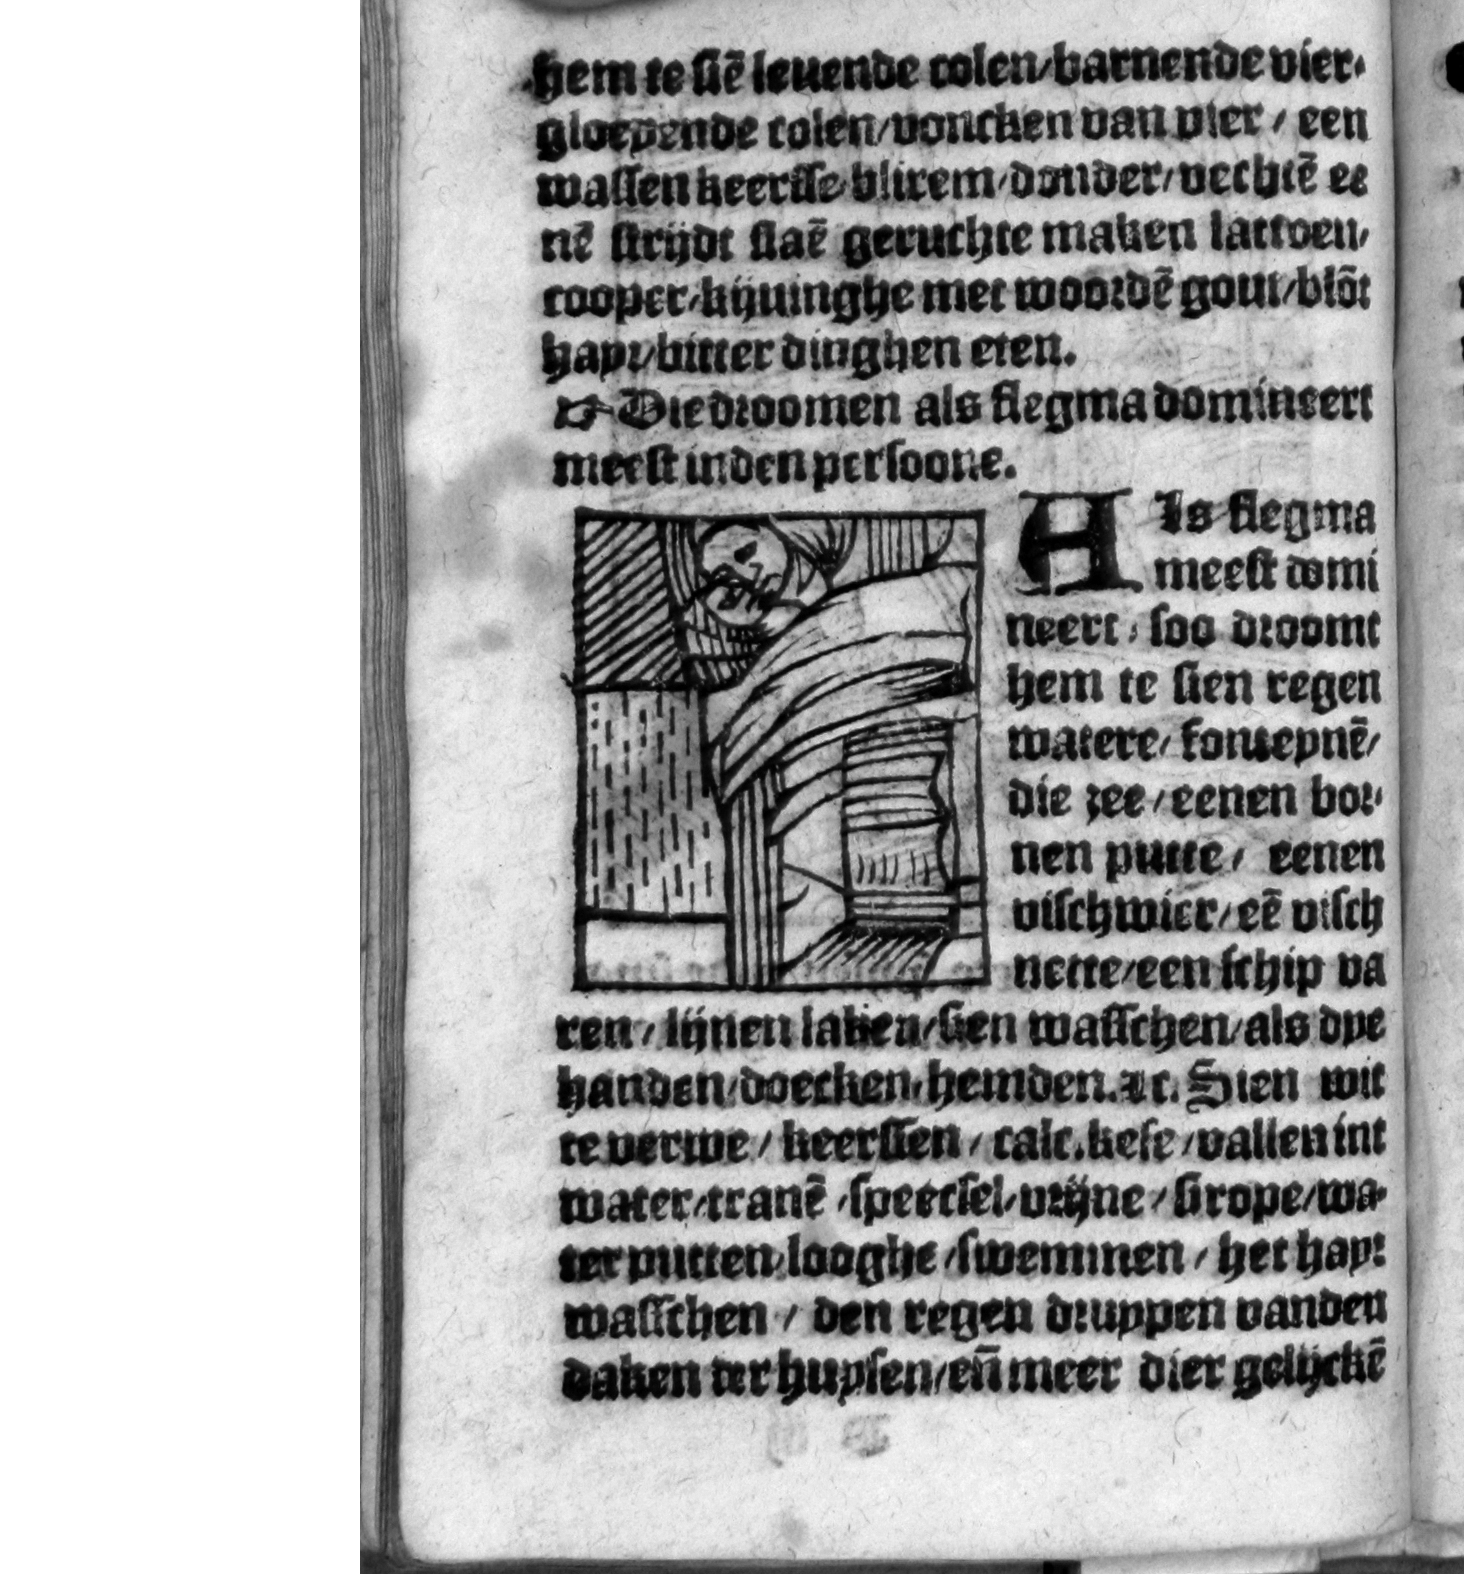 hem te siē leuende colen/barnende vier/
gloeyende colen/voncken van vier / een
wassen keersse/blixem/donder/vechtē ee
nē strijdt slaē geruchte maken lattoen/
cooper/kijuinghe met woordē gout/blōt
hayr/bitter dinghen eten.
☞ Die droomen als flegma domineert
meest inden persoone.
Als flegma
meest domi
neert / soo droomt
hem te sien regen
watere/ fonteynē/
die zee / eenen bor/
nen putte / eenen
vischwier/eē visch
nette/een schip va
ren / lijnen laken/sien wasschen/als dye
handen/doecken/hemden.⁊c. Sien wit
te verwe / keerssen / calc.kese /vallen int
water/tranē /speecsel/vrijne / sirope/wa/
ter putten/looghe /swemmen / het hayr
wasschen / den regen druppen vanden
daken ter huysen/eñ meer dier gelijckē